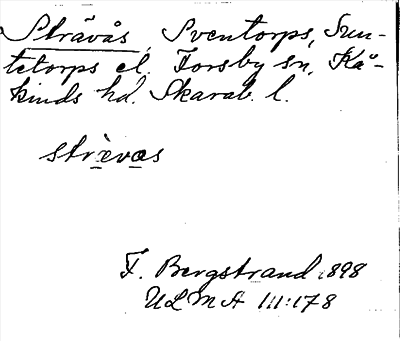 Strävås, Sventorps, Sun-
tetorps el. Forsby sn, Kå-
kinds hd. Skarab. l.
strævas
F. Bergstrand 1898
ULMA 111:178